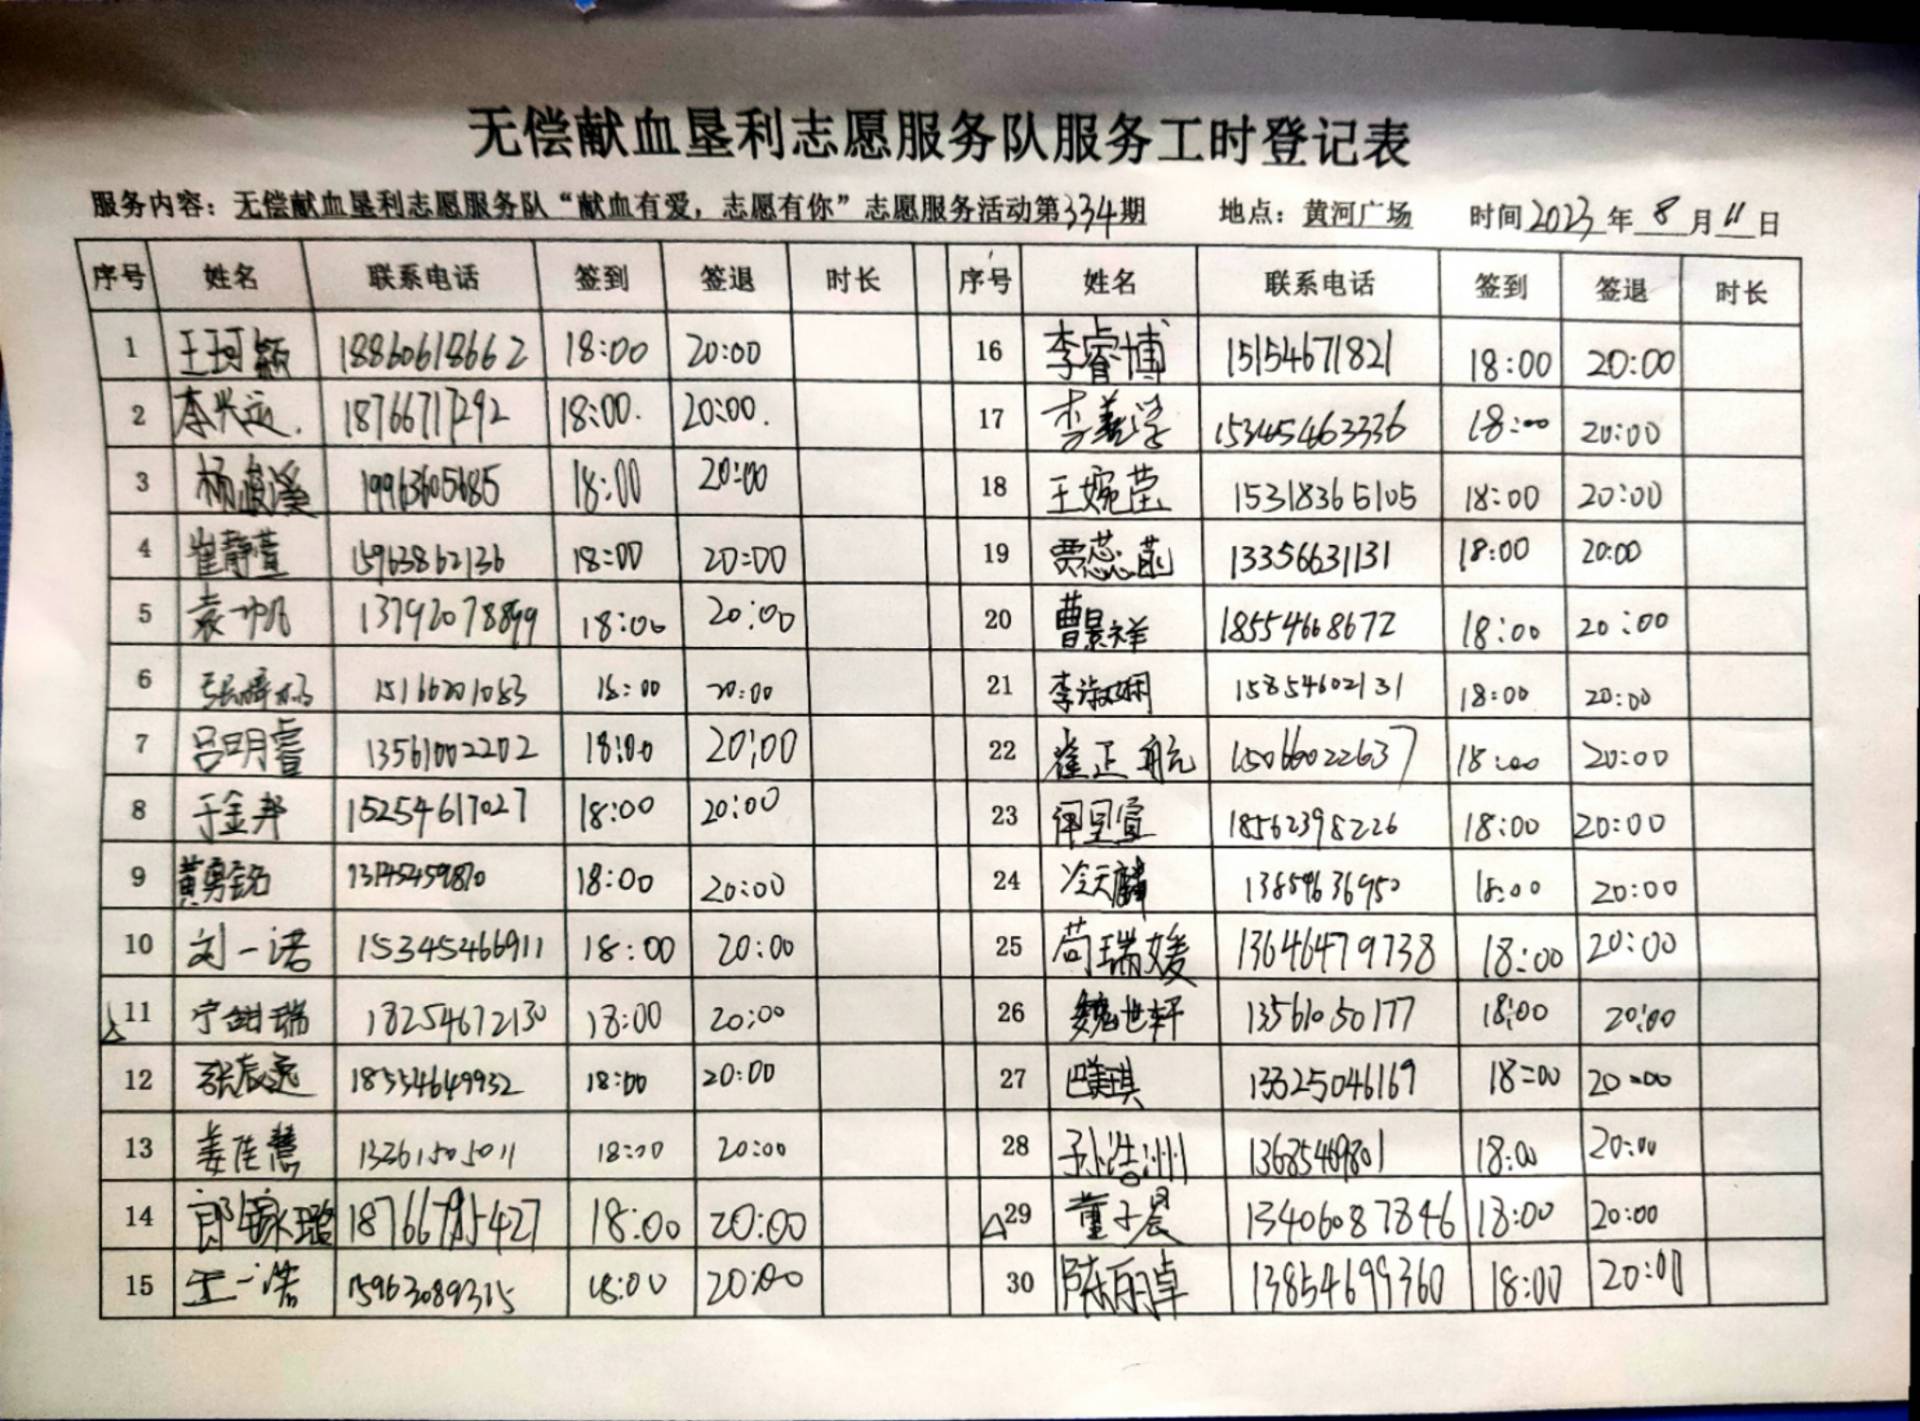 无偿献血垦利志愿服务队服务工时登记表
服务内容：无偿献血垦利志愿服务队“献血有爱，志愿有你”志愿服务活动第334期 地点：黄河广场 时间2023年8月11日
序号 姓名 联系电话 签到 签退 时长 序号 姓名 联系电话 签到 签退 时长
1 王珂颖 18860618662 18:00 20:00 16 李睿博 15154671821 18:00 20:00
2 李兴运. 18766717292 18:00. 20:00. 17 李義学 15345463336 18:00 20:00
3 杨峻溪 19963605685 18:00 20:00 18 王婉莹 15318365105 18:00 20:00
4 崔静萱 15963862136 18:00 20:00 19 贾蕊菡 13356631131 18:00 20:00
5 袁帅帆 13792078899 18:00 20:00 20 曹景祥 18554668672 18:00 20:00
6 15166201083 18:00 20:00 21 李淑娴 15854602131 18:00 20:00
7 吕明睿 13561002202 18:00 20:00 22 崔正航 15066022637 18:00 20:00
8 于金邦 15254617027 18:00 20:00 23 18562398226 18:00 20:00
9 黄勇铭 18:00 20:00 24 冷天麟 13854636950 18:00 20:00
10 刘一诺 15345466911 18:00 20:00 25 苟瑞媛 13646479738 18:00 20:00
△11 宁甜瑞 18254672130 18:00 20:00 26 魏世轩 13561050177 18:00 20:00
12 张辰逸 18554649932 18:00 20:00 27 巴美琪 13325046169 18:00 20:00
13 姜佳慧 13361505011 18:00 20:00 28 孙浩洲 13685469801 18:00 20:00
14 郎咏璐 18766795427 18:00 20:00 △29 董子晨 13406087846 18:00 20:00
15 王一浩 15963089315 18:00 20:00 30 陈雨卓 13854699360 18:00 20:00